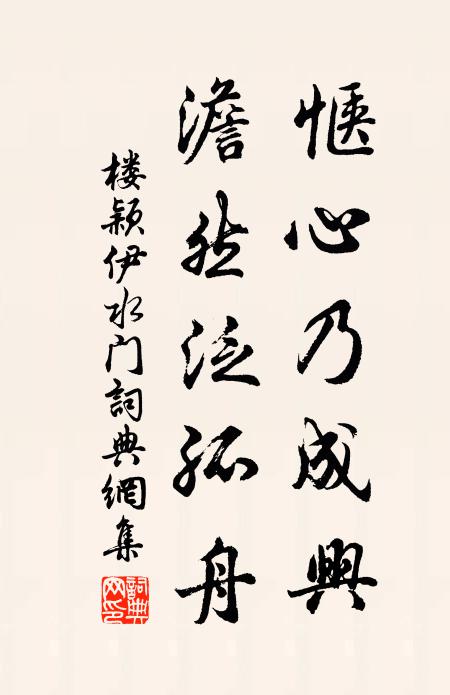 惬心乃成興
澹然泛孤舟
楼颖伊水门詞典網集
詞典网印